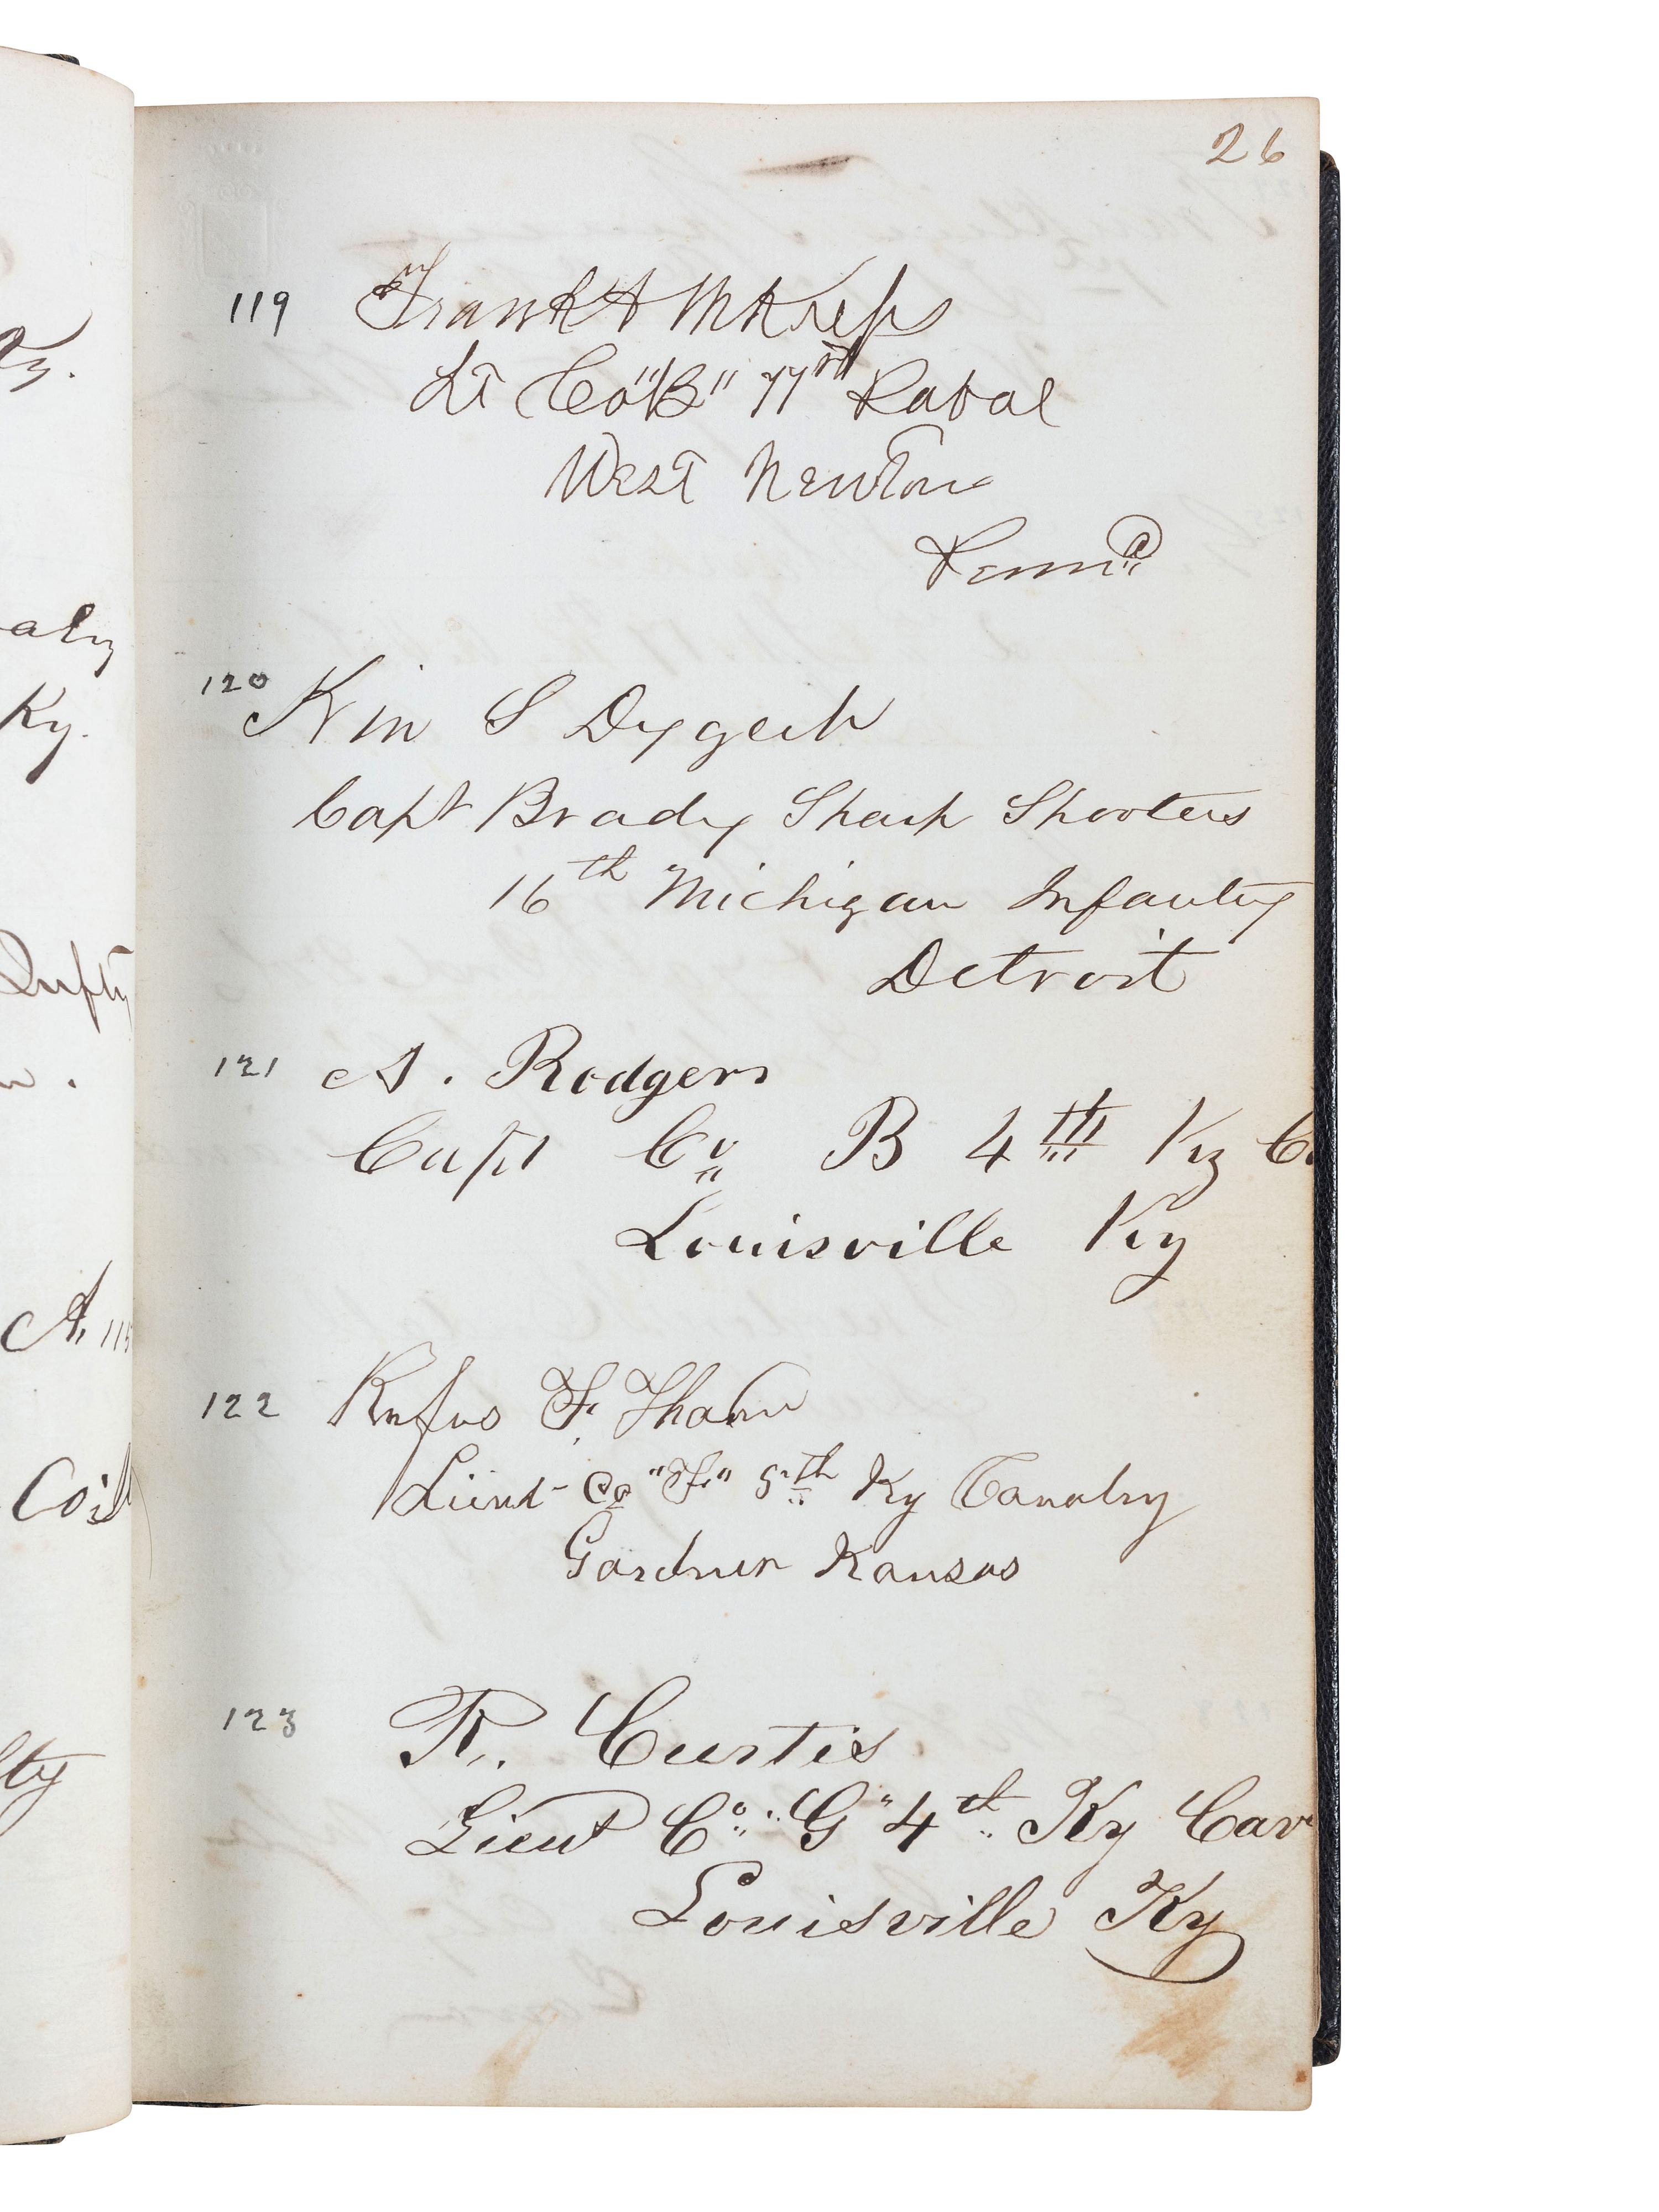 Ky.
alry
Ky.
Infty
A. 115
Co.
lty
26
119 Frank A M Kreps
Lt Co "B" 77th Pa Vol
West Newton
Penna
120 Kin S Dygert
Capt Brady Sharp Shooters
16th Michigan Infantry
Detroit
121 A. Rodgers
Capt Co B 4th Ky C
Louisville Ky
122 Rufus F. Tharn
Lieut- Co "F" 5th Ky Cavalry
Gardner Kansas
123 R. Curtis
Lieut Co "G" 4th Ky Cav
Louisville Ky